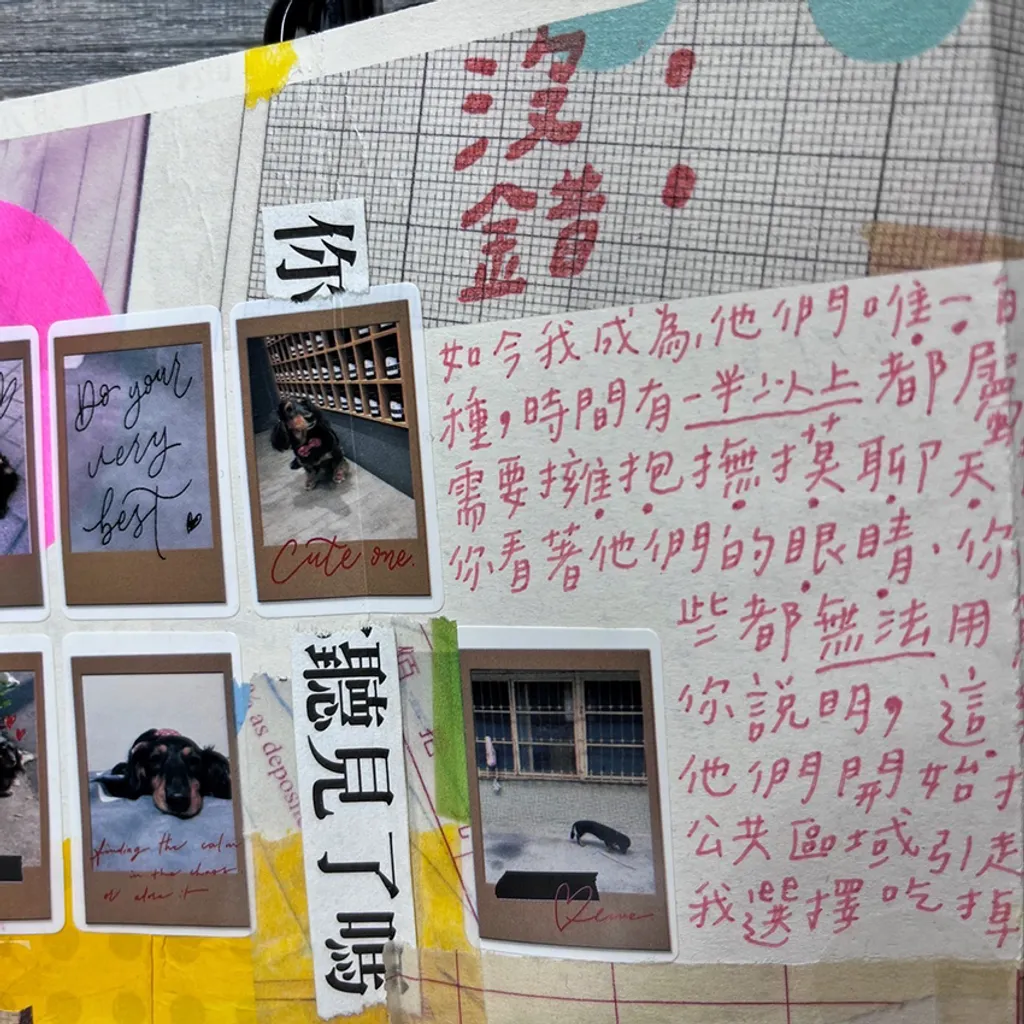 沒
錯
:
你
Do your
very
best
Cute one.
如今我成為他們唯一
種,時間有一半以上都
需要擁抱撫摸聊天
你看著他們的眼睛,你
些都無法用
你說明,這
他們開始
公共區域引走
我選擇吃掉
聽見了嗎
as deposit
finding the calm
in the chaos